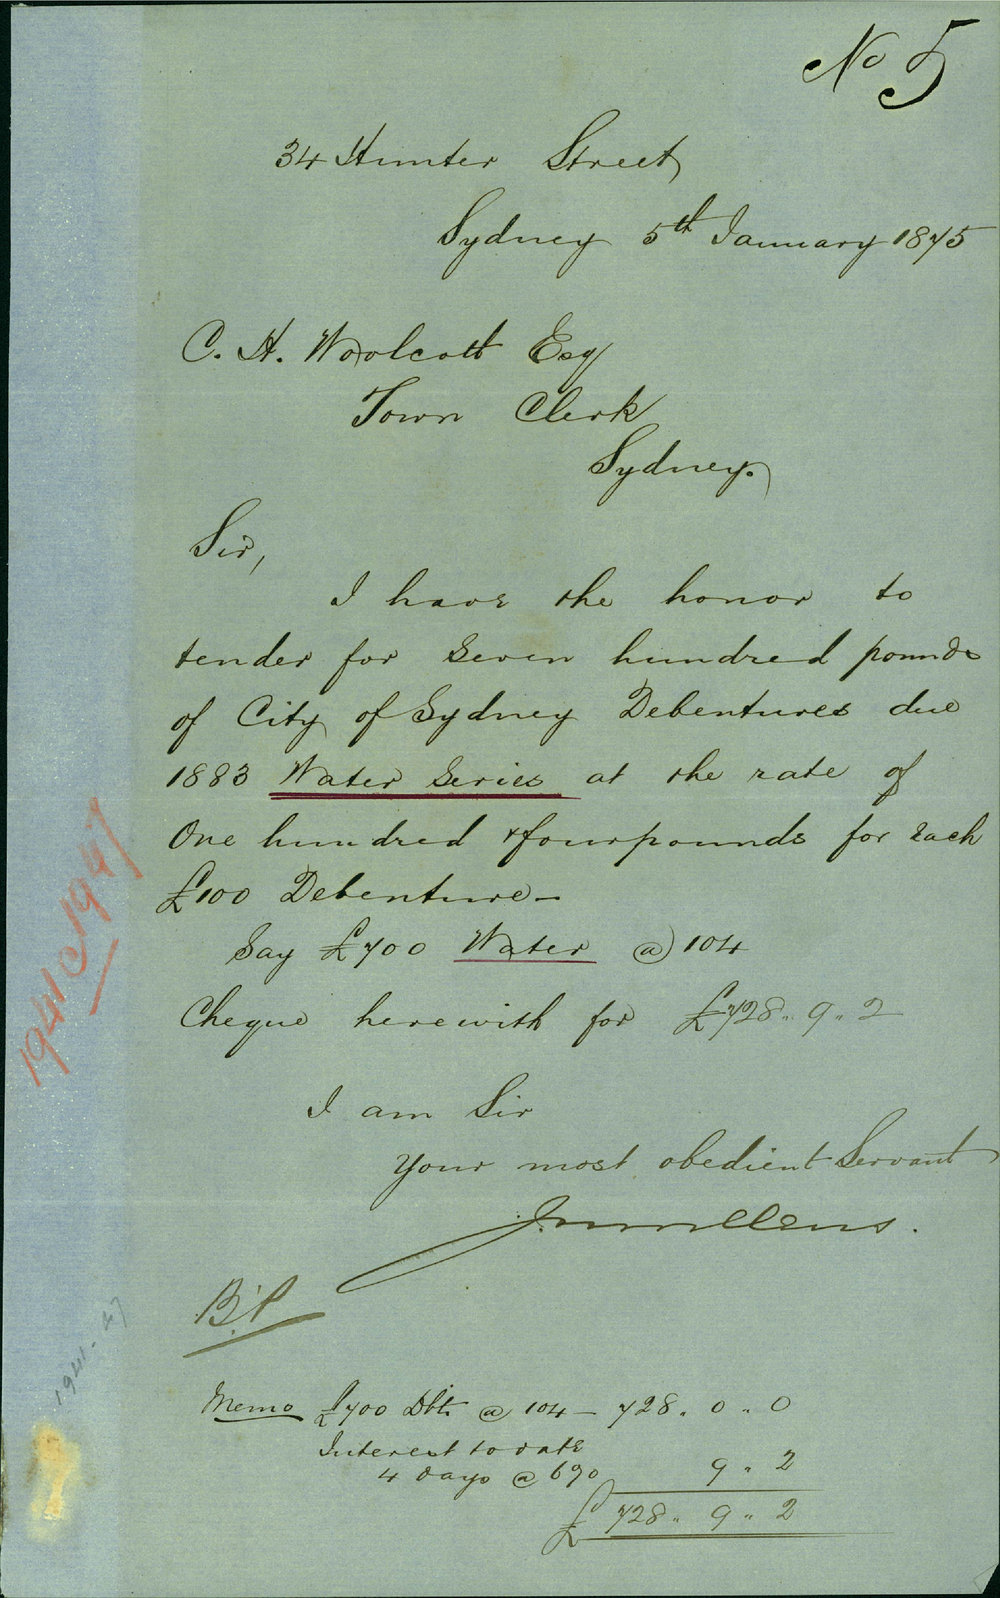 No 5
34 Hunter Street
Sydney 5th January 1875
C. H. Woolcott Esq
Town Clerk
Sydney.
Sir,
I have the honor to
tender for Seven hundred pounds
of City of Sydney Debentures due
1883 Water Series at the rate of
One hundred & four pounds for each
£100 Debenture —
Say £700 Water @ 104
Cheque herewith for £728 " 9 " 2
I am Sir
Your most obedient Servant
J. Mullens.
B.P.
Memo £700 Dbts @ 104 — 728 " 0 " 0
Interest to date
4 days @ 6%  9 " 2
£ 728 " 9 " 2
1941 c 1947
1941 - 47